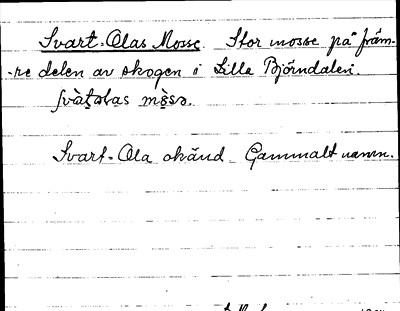 Svart-Olas Mosse. Stor mosse på främ-
-re delen av skogen i Lilla Björndalen.
svàṭolas mòsə.
Svart-Ola okänd. Gammalt namn.